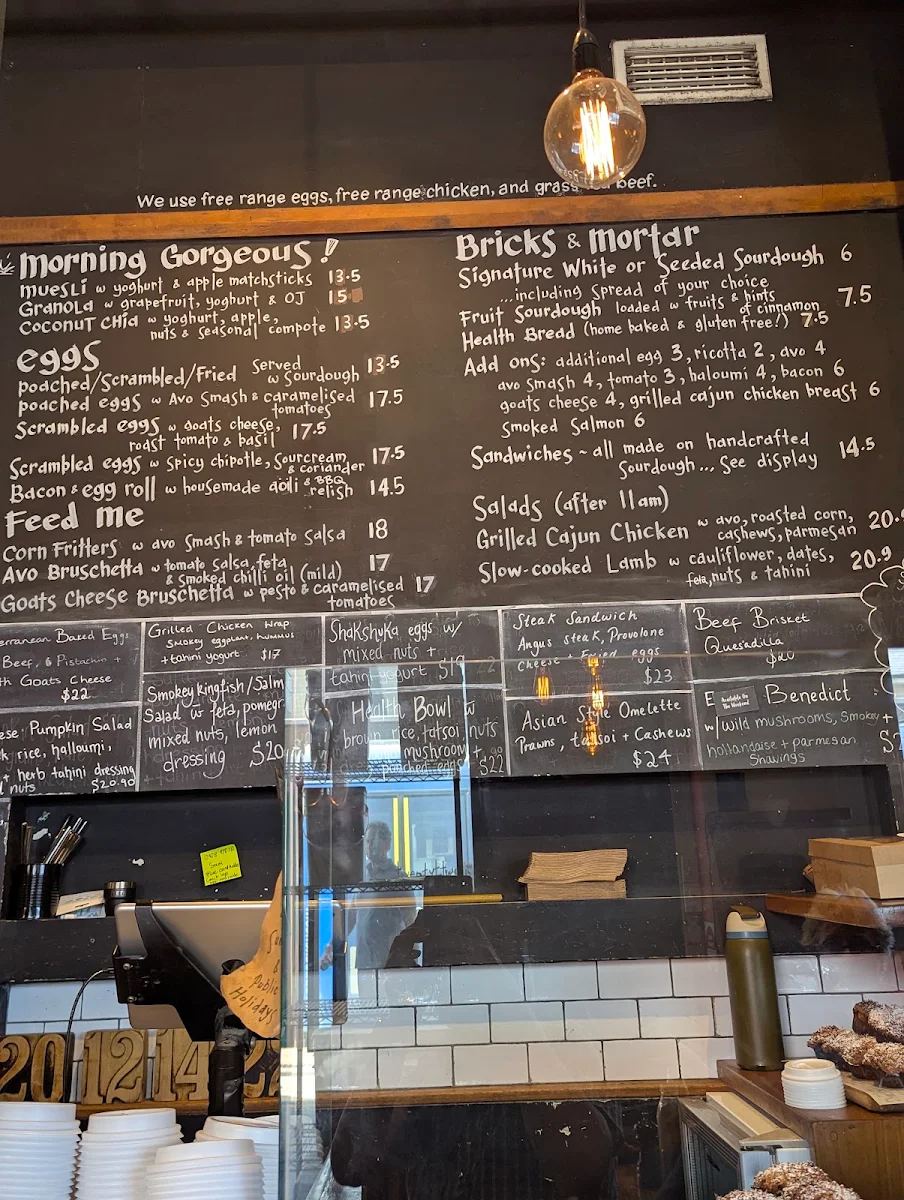 We use free range eggs, free range chicken, and grass beef.
Morning Gorgeous!
Muesli w yoghurt & apple matchsticks 13.5
Granola w grapefruit, yoghurt & OJ 15
Coconut Chia w yoghurt, apple,
nuts & seasonal compote 13.5
eggs
poached/Scrambled/Fried Served
w Sourdough 13.5
poached eggs w Avo Smash & caramelised
tomatoes 17.5
Scrambled eggs w goats cheese,
roast tomato & basil 17.5
Scrambled eggs w spicy chipotle, Sourcream
& coriander 17.5
Bacon & egg roll w housemade aoli & BBQ
relish 14.5
Feed Me
Corn Fritters w avo Smash & tomato Salsa 18
Avo Bruschetta w tomato salsa, feta
& smoked chilli oil (mild) 17
Goats Cheese Bruschetta w pesto & caramelised
tomatoes 17
Bricks & Mortar
Signature White or Seeded Sourdough 6
...including Spread of your choice
Fruit Sourdough loaded w fruits & hints
of cinnamon 7.5
Health Bread (home baked & gluten free!) 7.5
Add ons: additional egg 3, ricotta 2, avo 4
avo smash 4, tomato 3, haloumi 4, bacon 6
goats cheese 4, grilled cajun chicken breast 6
Smoked Salmon 6
Sandwiches ~ all made on handcrafted
Sourdough... See display 14.5
Salads (after 11am)
Grilled Cajun Chicken w avo, roasted corn,
cashews, parmesan 20.
Slow-cooked Lamb w cauliflower, dates,
feta, nuts & tahini 20.9
Baked Eggs
Beef, & Pistachio +
Goats Cheese
$22
Grilled Chicken Wrap
Smokey eggplant, hummus
+ tahini yogurt $17
Shakshuka eggs w/
mixed nuts +
tahini yogurt $19
Steak Sandwich
Angus Steak, Provolone
cheese + Fried eggs
$23
Beef Brisket
Quesadilla
$20
Pumpkin Salad
rice, halloumi,
+ herb tahini dressing
nuts $20.90
Smokey kingfish/Salm
Salad w feta, pomegr
mixed nuts, lemon
dressing $20
Health Bowl w
brown rice, tatsoi nuts
mushroom +
poached eggs $22
Asian Style Omelette
Prawns, tatsoi + Cashews
$24
E Available On
The Weekend Benedict
w/ wild mushrooms, Smokey +
hollandaise + parmesan
Shavings
Public
Holidays
20 12 14